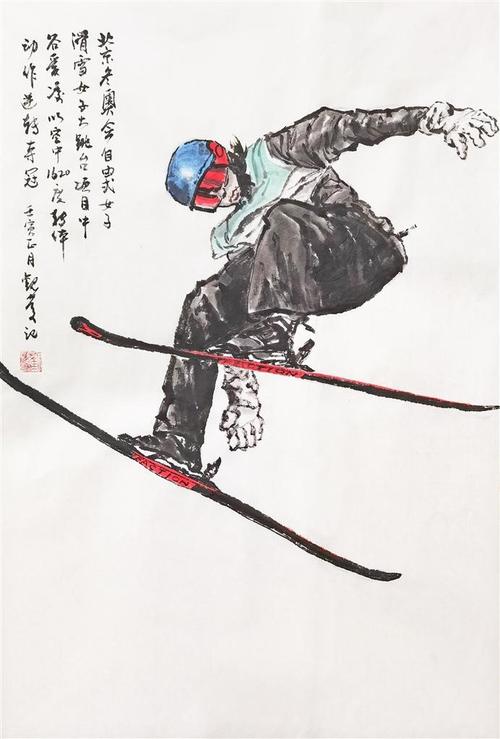 北京冬奥会自由式女子
滑雪女子大跳台项目中
谷爱凌以空中1620度转体
动作逆转夺冠 壬寅正月 观
记
FACTION
FACTION